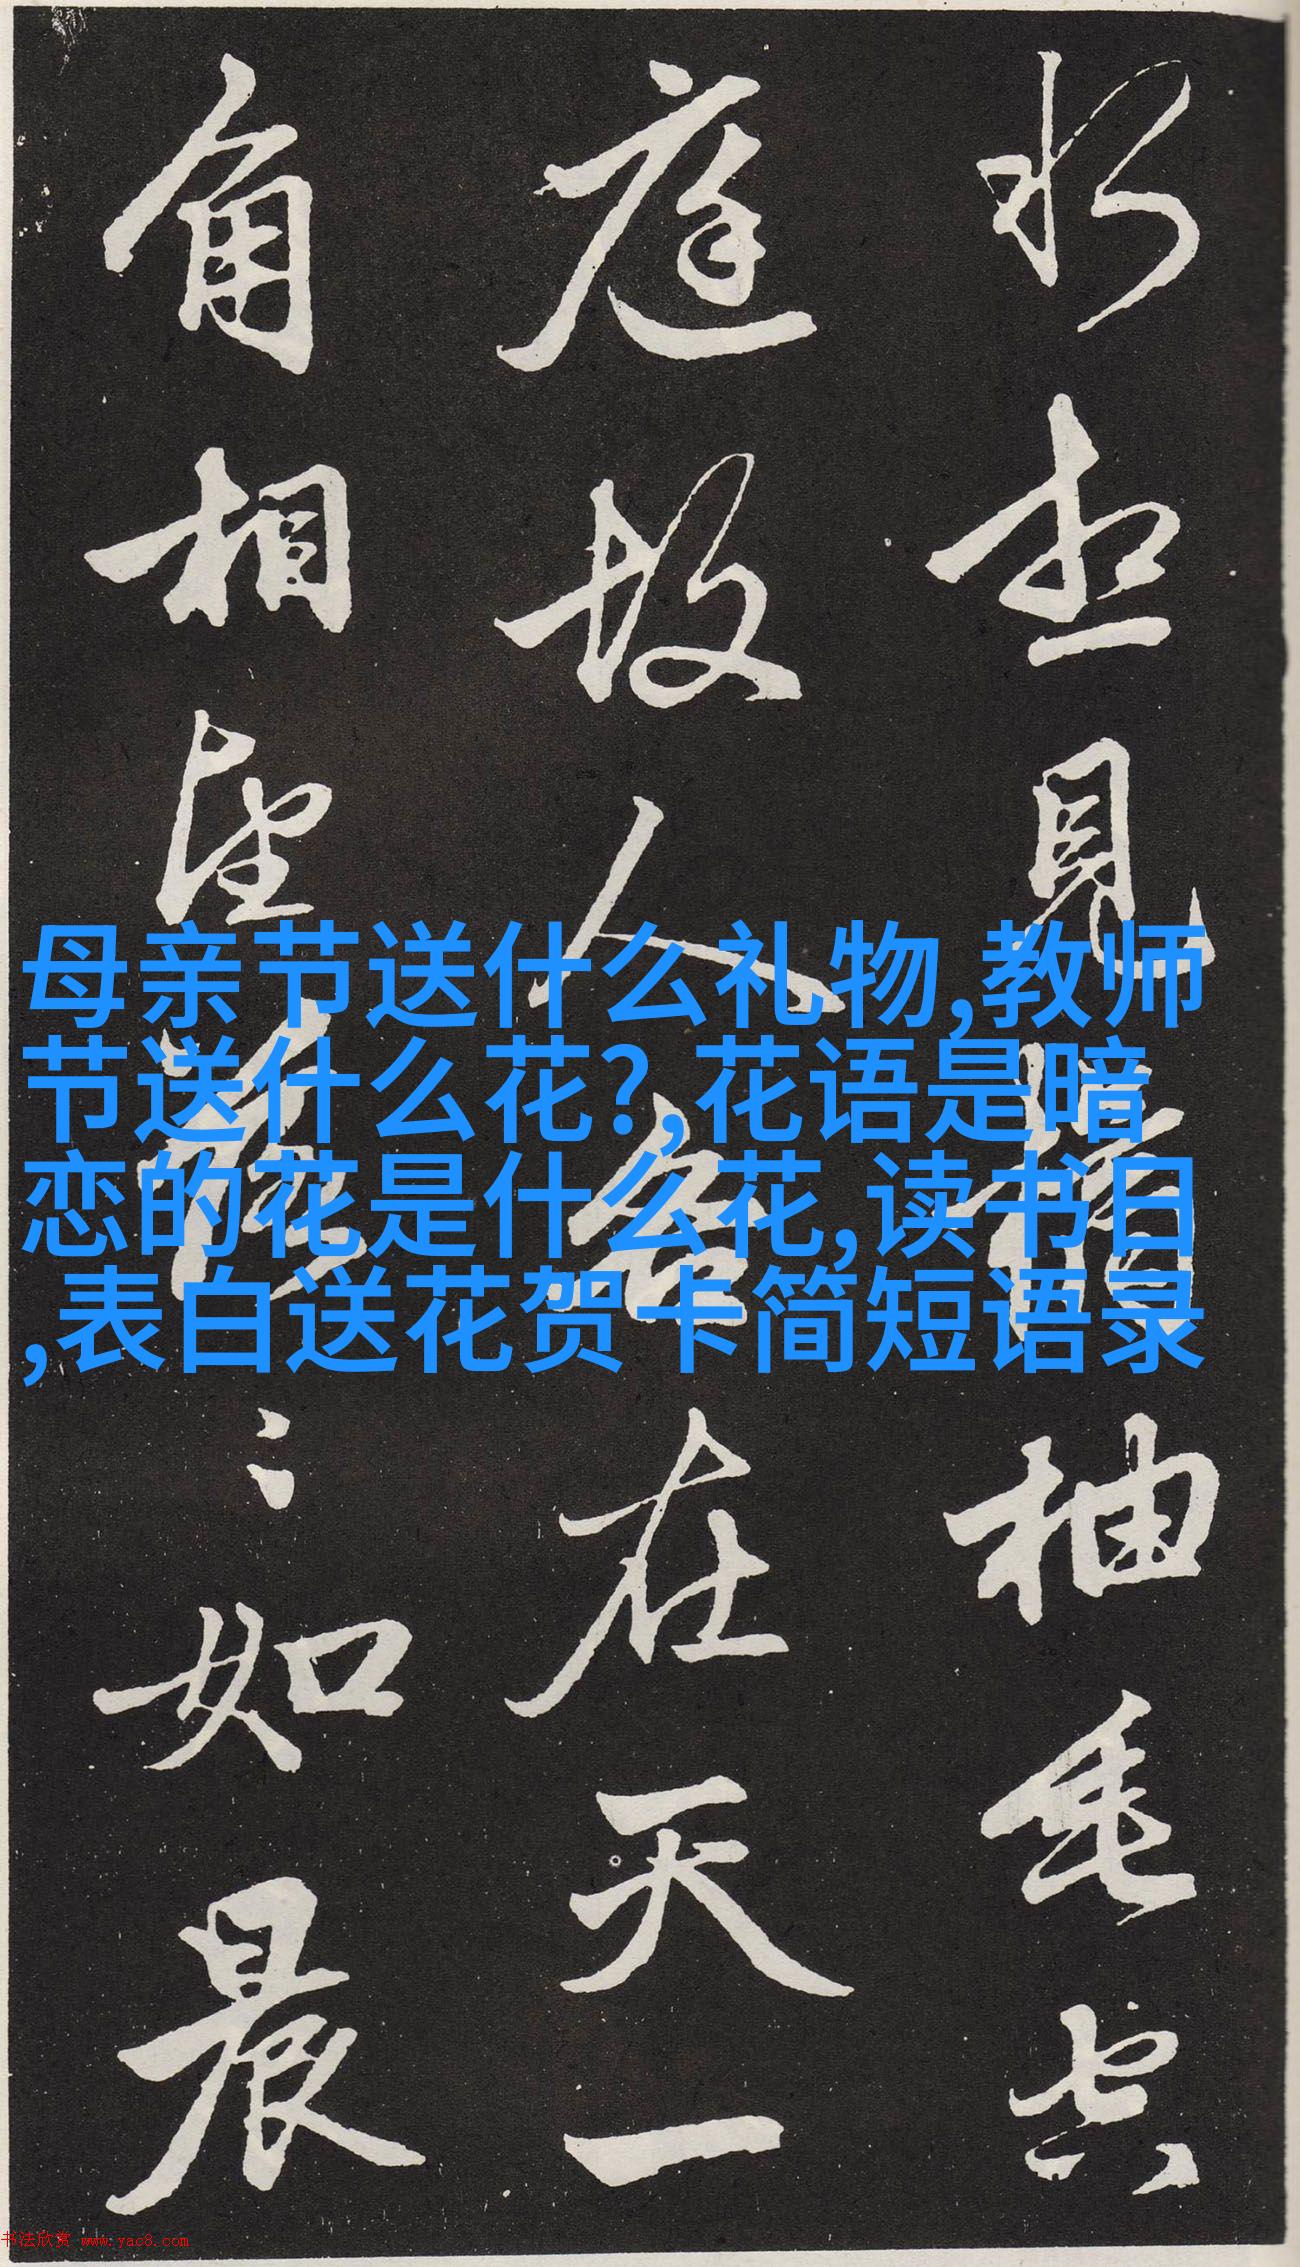 想見橘柚垂空
庭故人各在天一
角相望落〻如晨
母亲节送什么礼物,教师
节送什么花?,花语是暗
恋的花是什么花,读书日
,表白送花贺卡简短语录
书法欣赏 www.yac8.com